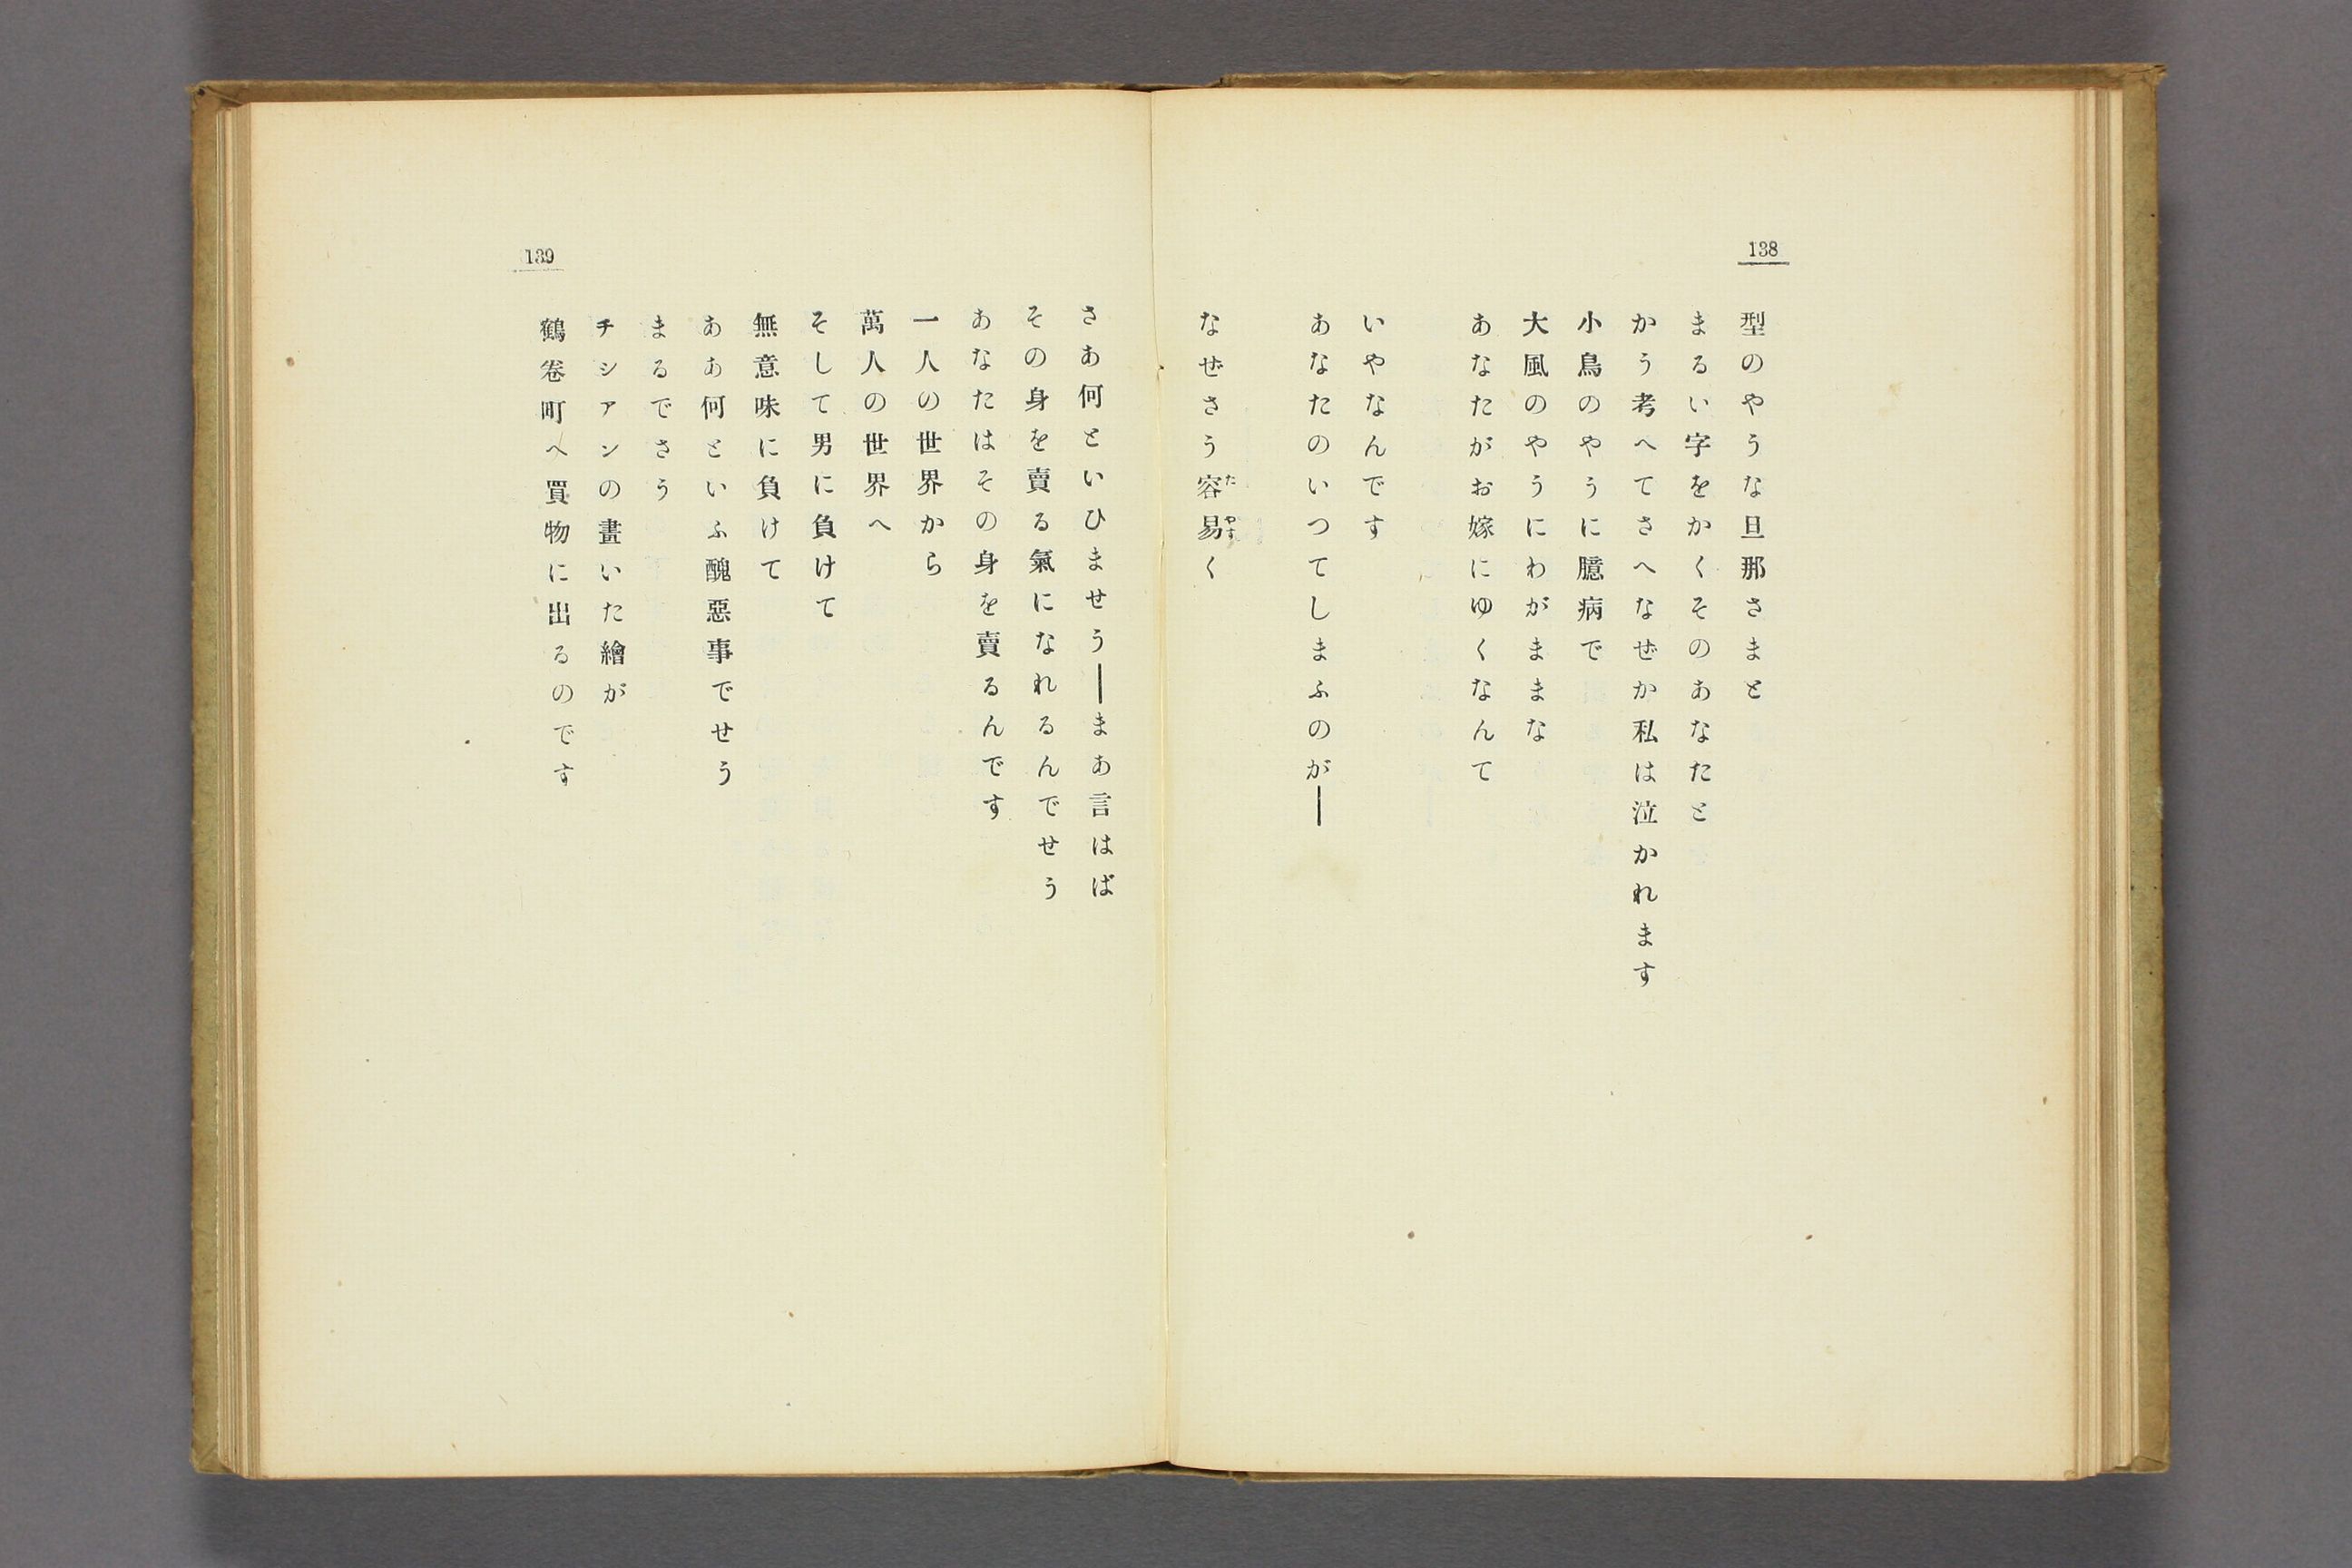 138
型のやうな旦那さまと
まるい字をかくそのあなたと
かう考へてさへなぜか私は泣かれます
小鳥のやうに臆病で
大風のやうにわがままな
あなたがお嫁にゆくなんて
いやなんです
あなたのいつてしまふのが―
なぜさう容易く
たやす
さあ何といひませう―まあ言はば
その身を賣る氣になれるんでせう
あなたはその身を賣るんです
一人の世界から
萬人の世界へ
そして男に負けて
無意味に負けて
ああ何といふ醜惡事でせう
まるでさう
チシアンの畫いた繪が
鶴卷町へ買物に出るのです
139